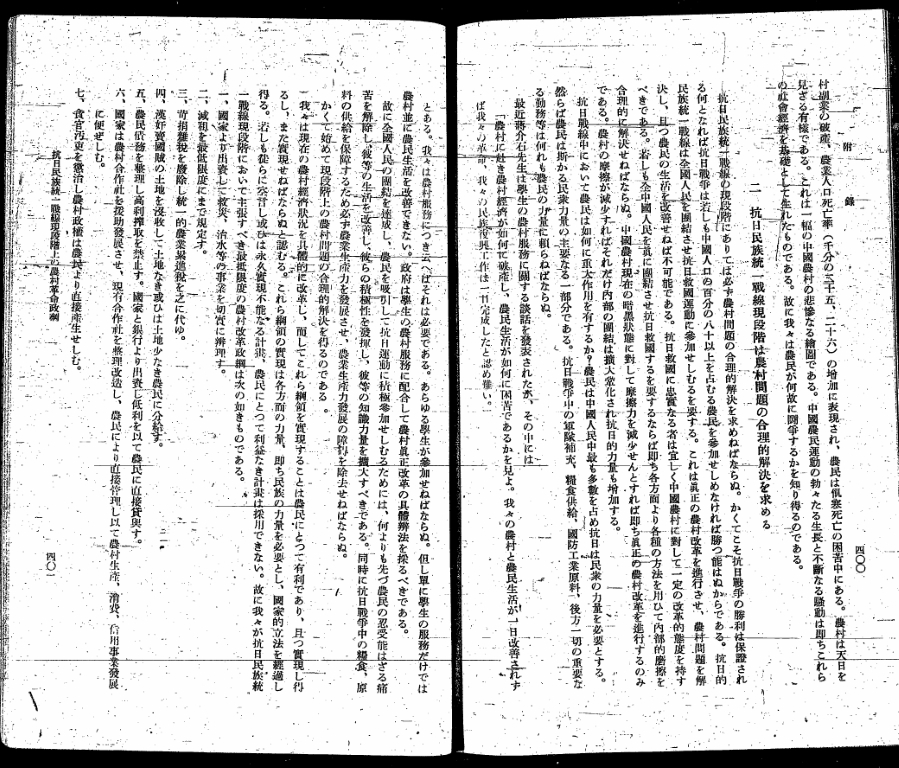 附錄
四〇〇
村副業の破產、農業人口死亡率(千分の二十五、二十六)の增加に表現され、農民は俱寒死亡の困苦中にある。農村は天日を
見ざる有樣である。これは一幅の中國農村の悲慘なる繪圖である。中國農民運動の勃々たる生長と不斷なる騷動は即ちこれら
の社會經濟を基礎として生れたものである。故に我々は農民が何故に鬪爭するかを知り得るのである。
二 抗日民族統一戰線現段階は農村問題の合理的解決を求める
抗日民族統一戰線の現段階にありては必ず農村問題の合理的解決を求めねばならぬ。かくてこそ抗日戰爭の勝利は保證され
る何となれば抗日戰爭は若しも中國人口の百分の八十以上を占むる農民を參加せしめなければ勝つ能はぬからである。抗日的
民族統一戰線は全國人民を團結させ抗日救國運動に參加せしむるを要する。これは眞正の農村改革を進行させ、農村問題を解
決し、且つ農民の生活を改善せねば不可能である。抗日救國に忠實なる者は宜しく中國農村に對して一定の改革的態度を持す
べきである。若しも全中國人民を眞に團結させ抗日救國するを要するならば即ち各方面より各種の方法を用ひて內部的磨擦を
合理的に解決せねばならぬ。中國農村現在の暗黑狀態に對して摩擦力を減少せんとすれば即ち眞正の農村改革を進行するのみ
である。農村の摩擦が減少すればそれだけ內部的團結は擴大鞏化され抗日的力量も增加する。
抗日戰線中において農民は如何に重大作用を有するか?農民は中國人民中最も多數を占め抗日は民衆の力量を必要とする。
然らば農民は斯かる民衆力量の主要なる一部分である。抗日戰爭中の軍隊補充、糧食供給、國防工業原料、後方一切の重要な
る勤務等は何れも農民の力量に賴らねばならぬ。
最近蔣介石先生は學生の農村服務に關する談話を發表されたが、その中には
「農村に赴き農村經濟が如何に破產し、農民生活が如何に困苦であるかを見よ。我々の農村と農民生活が一日改善されず
ば我々の革命、我々の民族復興工作は一日完成したと認め難い。
とある。我々は農村服務につき云へばそれは必要である。あらゆる學生が參加せねばならぬ。但し單に學生の服務だけでは
農村並に農民生活を改善できない。政府は學生の農村服務に配合して農村眞正改革の具體辨法を採るべきである。
故に全國人民の團結を達成し、農民を吸引して抗日運動に積極參加せしむるためには、何よりも先づ農民の忍受能はざる痛
苦を解除し、彼等の生活を改善し、彼らの積極性を發揮し、彼等の知識力量を擴大すべきである。同時に抗日戰爭中の糧食、原
料の供給を保障するため必ず農業生產力を發展させ、農業生產力發展の障碍を除去せねばならぬ。
かくて始めて現段階上の農村問題の合理的解決を得るのである。
我々は現在の農村經濟狀況を具體的に改革し、而してこれら綱領を實現することは農民にとつて有利であり、且つ實現し得
るし、また實現せねばならぬと認むる。これら綱領の實現は各方面の力量、即ち民族の力量を必要とし、國家的立法を經過し
得る。若しも徒らに空言し或ひは永久實現不能なる計畫、農民にとつて利益なき計畫は採用できない。故に我々が抗日民族統
一戰線現段階において主張すべき最低限度の農村改革政綱は次の如きものである。
一、國家より出資して救災、治水等の事業を切實に辨理す。
二、減租を最低限度にまで規定す。
三、苛捐雜稅を廢除し統一的農業累進稅を之に代ゆ。
四、漢奸賣國賊の土地を沒收して土地なき或ひは土地少なき農民に分給す。
五、農民債務を整理し高利搾取を禁止す。國家と銀行より出資し低利を以て農民に直接貸與す。
六、國家は農村合作社を援助發展させ、現有合作社を整理改造し、農民により直接管理し以て農村生產、消費、信用事業發展
に便ぜしむ。
七、貪官汚吏を懲治し農村政權は農民より直接產生せしむ。
抗日民族統一戰線現段階上の農村革命政綱
四〇一